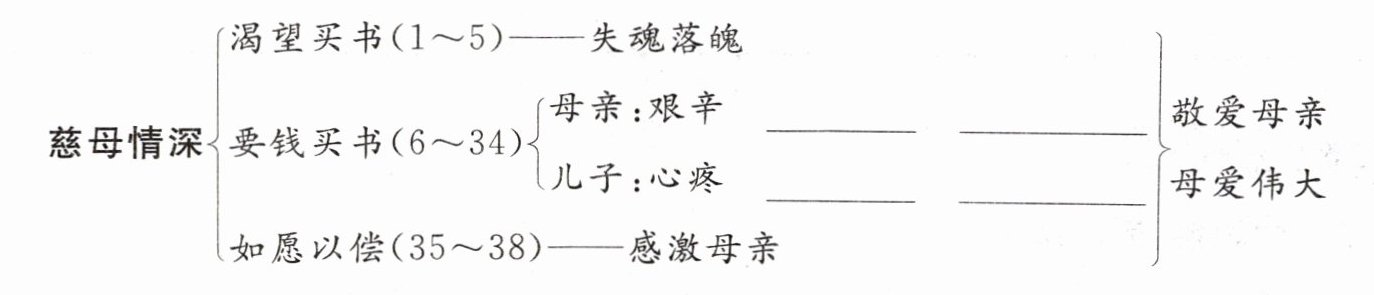 渴望买书(1～5)——失魂落魄
母亲:艰辛
敬爱母亲
慈母情深 要钱买书(6～34)
儿子:心疼
母爱伟大
如愿以偿(35～38)——感激母亲